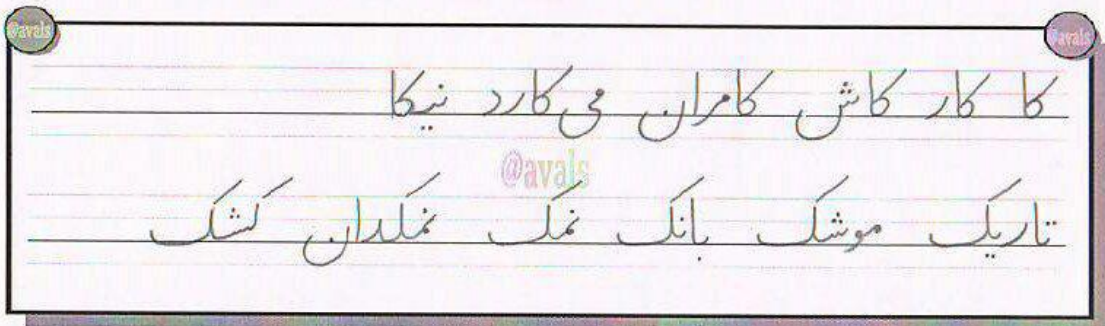 @avals @avals
کا کار کاش کامران می کارد نیکا
@avals
تاریک موشک بانک نمک نمکدان کشک